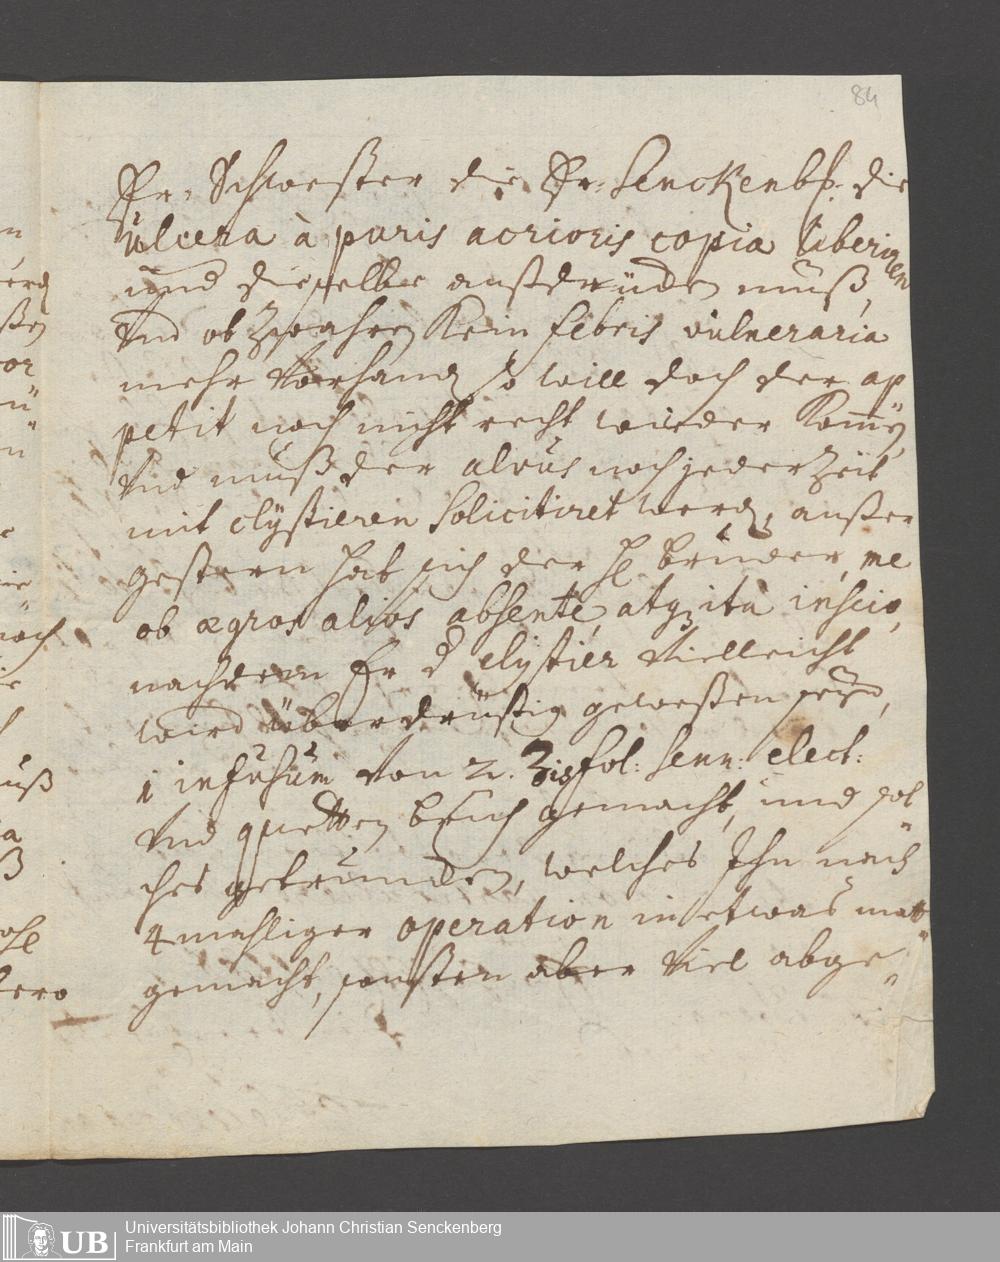 84
Fr. Schwester die Fr. Senckenb. die
Ulcera à puris acrioris copia liberiren
und dieselbe außdrüden muß,
Und ob zwahren Kein febris vulneraria
mehr Vorhand so will doch der ap
petit noch nicht recht wieder Komen,
Und muß der alvus noch jederzeit
mit clÿstieren solicitiret werd, außer
gestern hat sich der H Bruder, me
ob ægros alios absente, atq ita inscio,
nachdem Er d clystier Vielleicht
wird überdrüßig geweßen seyn,
1 infusum Von 2. ʒis fol: senn: elect:
Und quetten gemacht, und sol
ches getruncken, welches Ihn nach
4 mahliger operation in etwas matt
gemacht, sonsten aber Viel abge
Universitätsbibliothek Johann Christian Senckenberg
Frankfurt am Main
UB